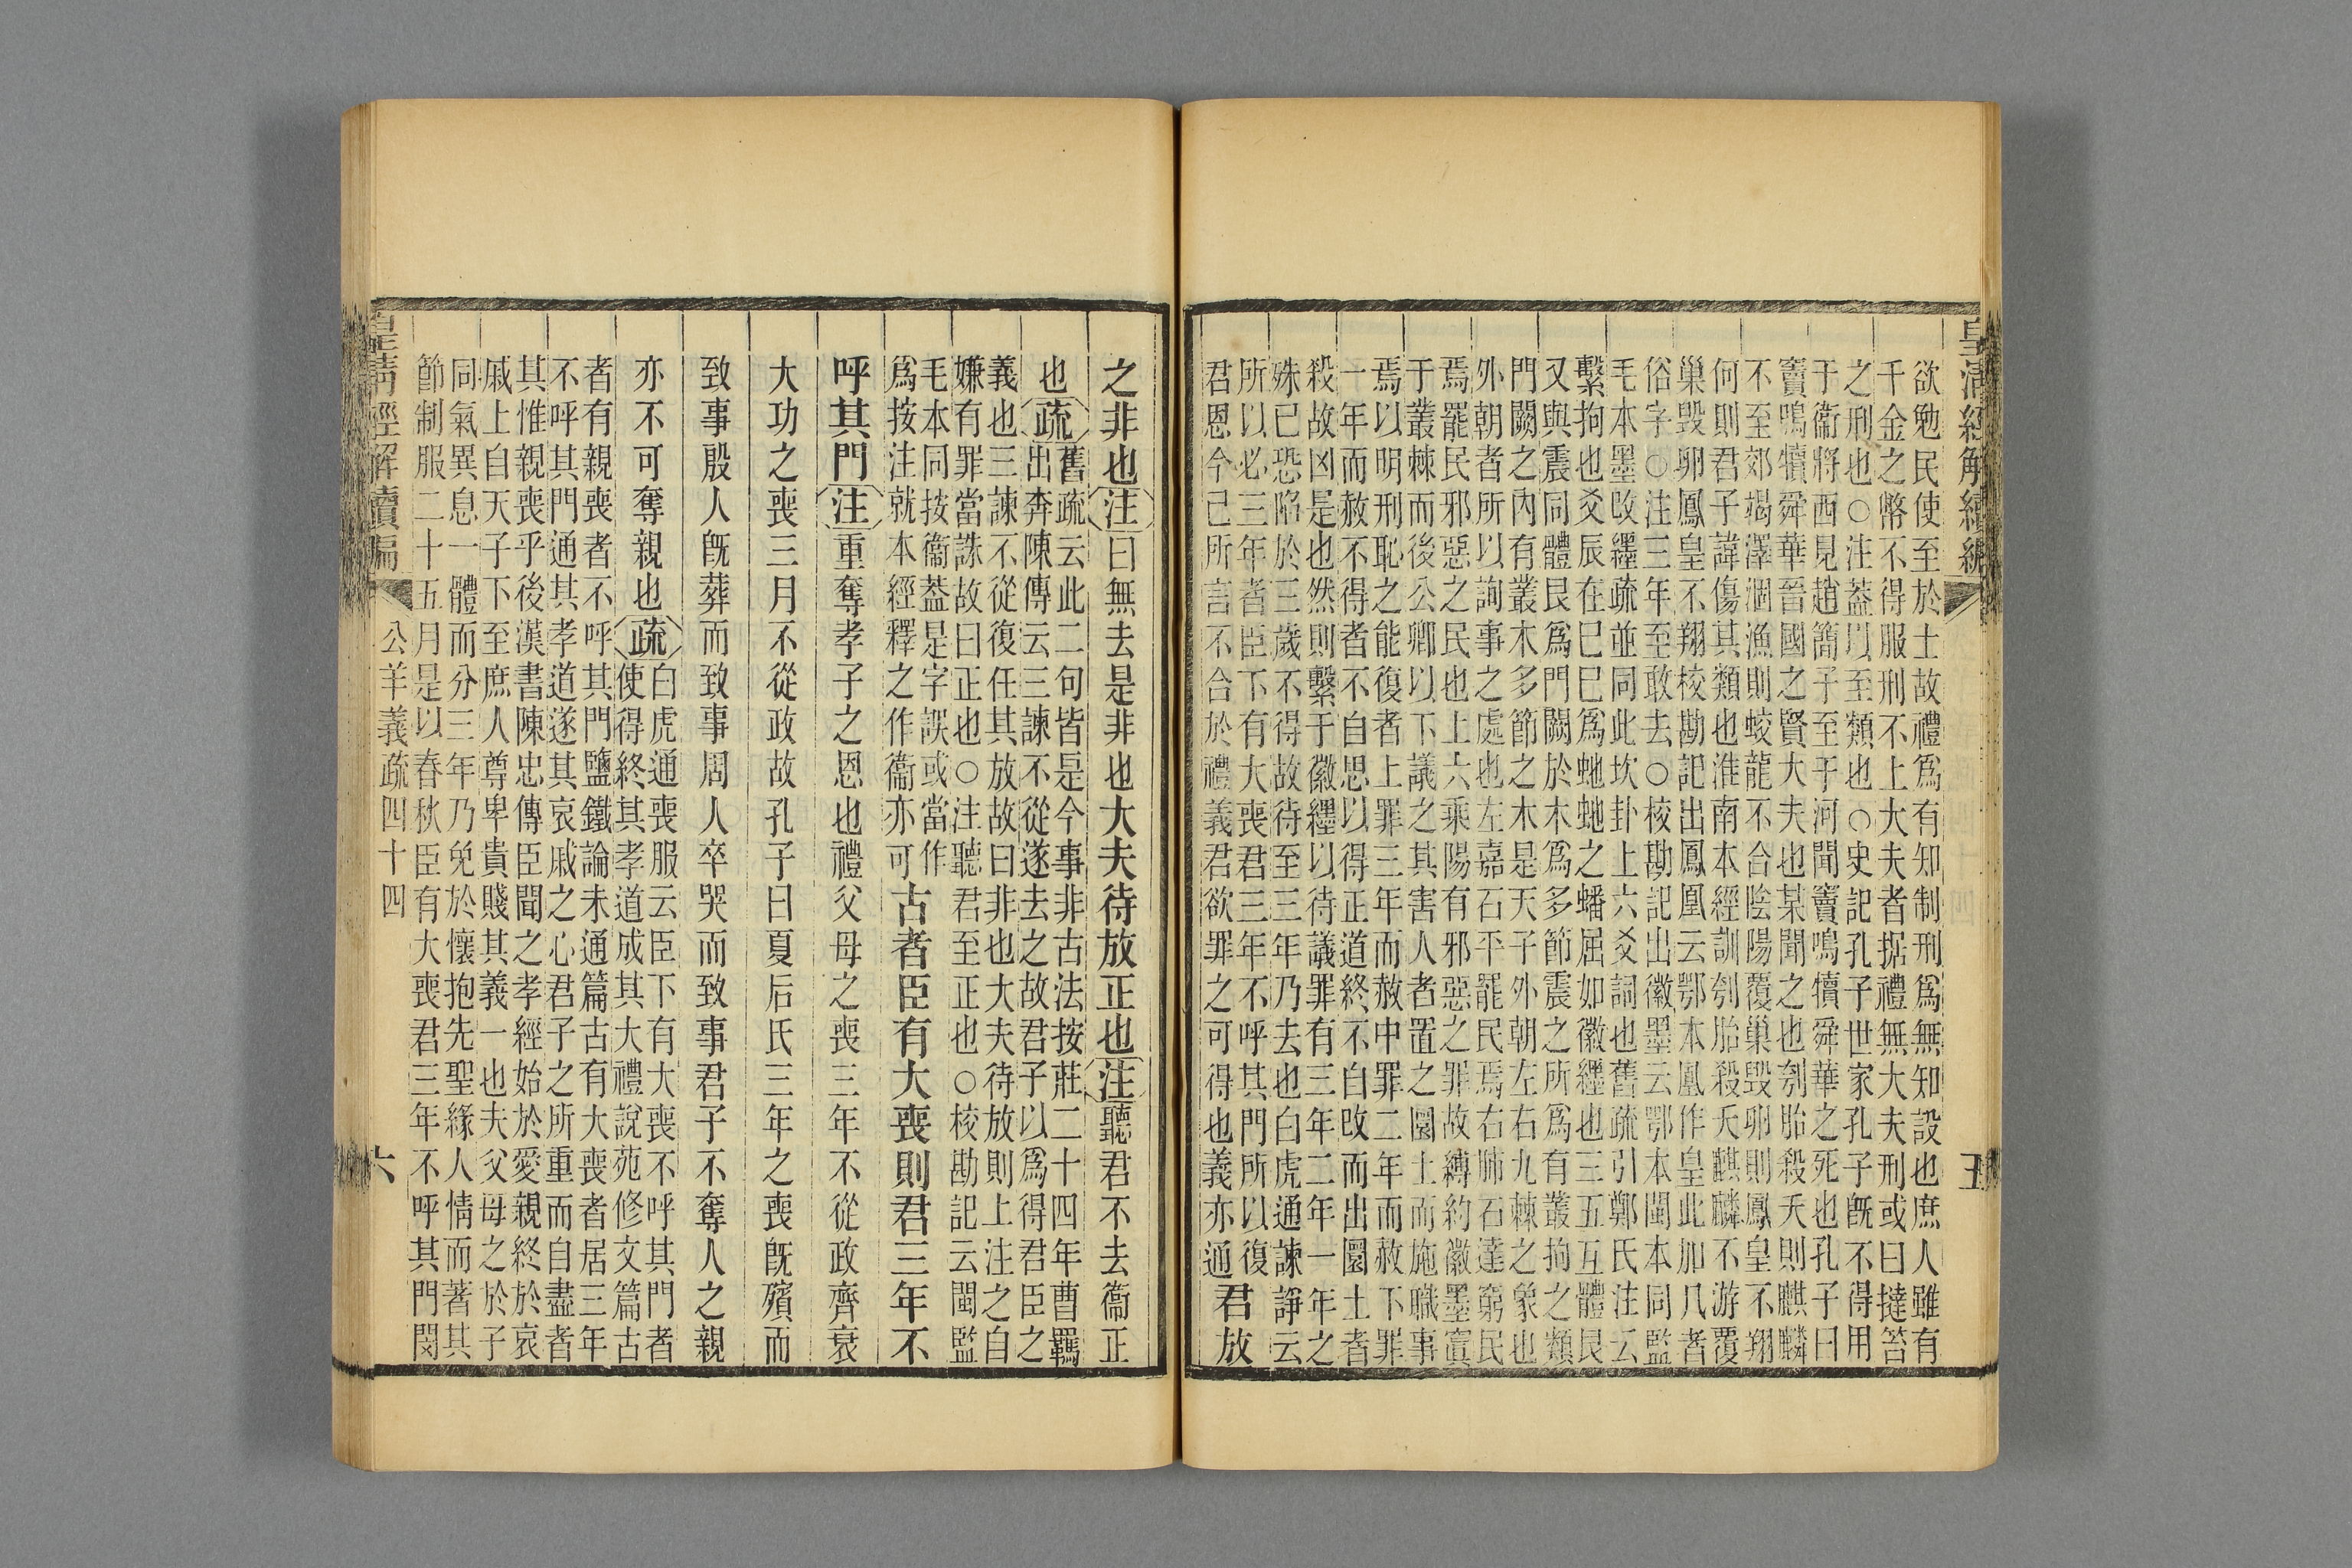 皇清經解續編
五
欲勉民使至於士故禮爲有知制刑爲無知設也庶人雖有
千金之幣不得服刑不上大夫者据禮無大夫刑或曰撻笞
之刑也○注蓋以至類也○史記孔子世家孔子旣不得用
于衞將西見趙簡子至于河聞竇鳴犢舜華之死也孔子曰
竇鳴犢舜華晉國之賢大夫也某聞之也刳胎殺夭則麒麟
不至郊竭澤涸漁則蛟龍不合陰陽覆巢毀卵則鳳皇不翔
何則君子諱傷其類也淮南本經訓刳胎殺夭麒麟不游覆
巢毀卵鳳皇不翔校勘記出鳳凰云鄂本凰作皇此加几者
俗字○注三年至敢去○校勘記出徽墨云鄂本閩本同監
毛本墨改纆疏並同此坎卦上六爻詞也舊疏引鄭氏注云
繫拘也爻辰在巳巳爲虵虵之蟠屈如徽纆也三五互體艮
又與震同體艮爲門闕於木爲多節震之所爲有叢拘之類
門闕之內有叢木多節之木是天子外朝左右九棘之象也
外朝者所以詢事之處也左嘉石平罷民焉右肺石達窮民
焉罷民邪惡之民也上六乘陽有邪惡之罪故縛約徽墨寘
于叢棘而後公卿以下議之其害人者置之圜土而施職事
焉以明刑恥之能復者上罪三年而赦中罪二年而赦下罪
一年而赦不得者不自思以得正道終不自改而出圜土者
殺故凶是也然則繫于徽纆以待議罪有三年二年一年之
殊已恐陷於三歲不得故待至三年乃去也白虎通諫諍云
所以必三年者臣下有大喪君三年不呼其門所以復
君恩今己所言不合於禮義君欲罪之可得也義亦通
君放
之非也注曰無去是非也大夫待放正也注聽君不去衞正
也疏
舊疏云此二句皆是今事非古法按莊二十四年曹羈
出奔陳傳云三諫不從遂去之故君子以爲得君臣之
義也三諫不從復任其放故曰非也大夫待放則上注之自
嫌有罪當誅故曰正也○注聽君至正也○校勘記云閩監
毛本同按衞葢是字誤或當作
爲按注就本經釋之作衞亦可
古者臣有大喪則君三年不
呼其門注重奪孝子之恩也禮父母之喪三年不從政齊衰
大功之喪三月不從政故孔子曰夏后氏三年之喪旣殯而
致事殷人旣葬而致事周人卒哭而致事君子不奪人之親
亦不可奪親也疏
白虎通喪服云臣下有大喪不呼其門者
使得終其孝道成其大禮說苑修文篇古
者有親喪者不呼其門鹽鐵論未通篇古有大喪者居三年
不呼其門通其孝道遂其哀戚之心君子之所重而自盡者
其惟親喪乎後漢書陳忠傳臣聞之孝經始於愛親終於哀
戚上自天子下至庶人尊卑貴賤其義一也夫父母之於子
同氣異息一體而分三年乃免於懷抱先聖緣人情而著其
節制服二十五月是以春秋臣有大喪君三年不呼其門閔
皇清經解續編
公羊義疏四十四
六